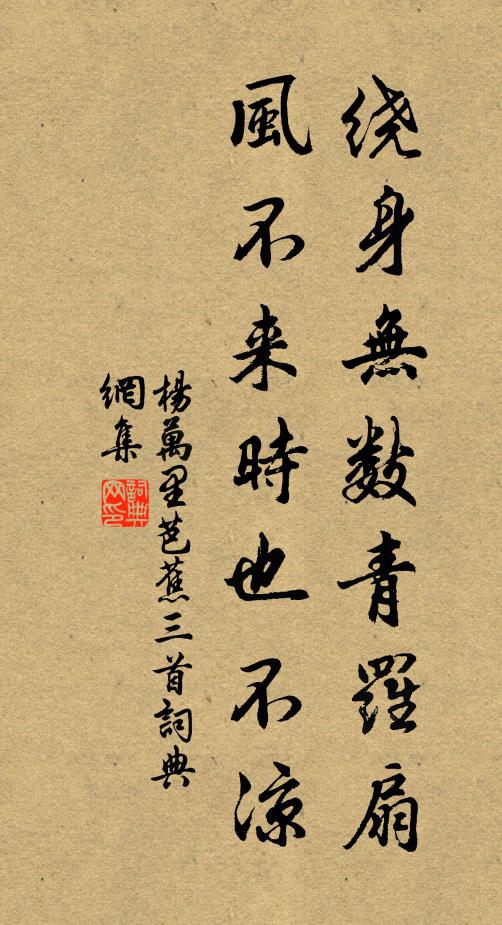 绕身無数青羅扇
風不来時也不凉
楊萬里芭蕉三首詞典
網集
詞典
网印